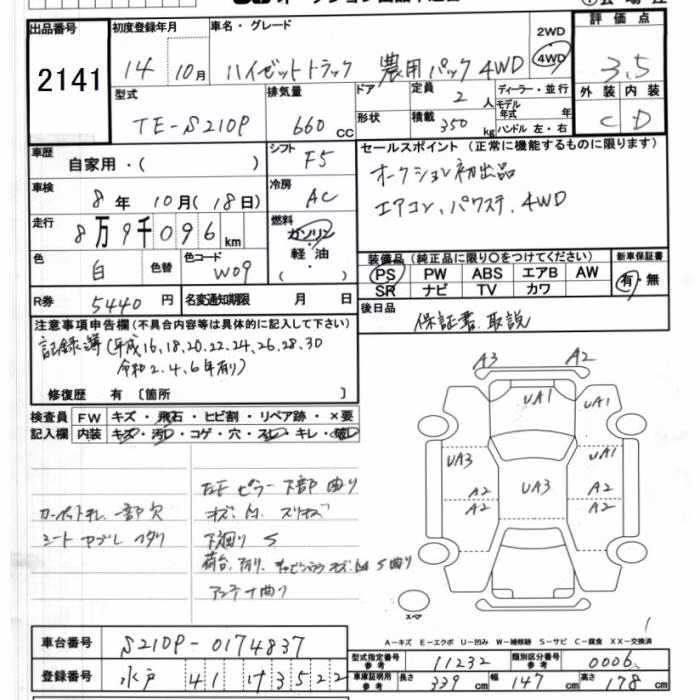 出品番号
2141
初度登録年月
14 10月
車名・グレード
ハイゼットトラック 農用パック 4WD
2WD
4WD
評価点
3.5
外装 内装
C D
型式
TE-S210P
排気量
660 cc
ドア
形状
定員
2 人
積載
350 kg
ディーラー・並行
モデル年式 年
ハンドル 左・右
車歴
自家用・( )
シフト
F5
車検
8年 10月(18日)
冷房
AC
走行
8万9千096 km
燃料
ガソリン
軽・油
( )
色
白
色替
色コード
W09
R券
5440円
名変通知期限 月 日
セールスポイント (正常に機能するものに限ります)
オークション初出品
エアコン、パワステ、4WD
装備品 (純正品に限り○をつけてください)
PS PW ABS エアB AW
SR ナビ TV カワ
新車保証書
有・無
後日品
保証書、取説
注意事項申告欄 (不具合内容等は具体的に記入して下さい)
記録簿(平成16,18,20,22,24,26,28,30
令和2.4.6年有り)
修復歴 有 〔箇所 〕
検査員記入欄
FW キズ・飛石・ヒビ割・リペア跡・×要
内装 キズ・汚れ・コゲ・穴・スレ・キレ・破れ
カーペットキレ、一部欠
シート ヤブレ ヘタリ
左F ピラー 下部 曲り
下廻り S
アンテナ曲り
A3 A2
UA1 UA1
UA3 UA1
A2 UA3 A2
A2 A2
スペア
A-キズ E-エクボ U-凹み W-補修跡 S-サビ C-腐食 XX-交換済
車台番号
S210P-0174837
登録番号
水戸 41 け 3522
型式指定番号 参考
11232
類別区分番号 参考
0006
車庫証明用 参考
長さ 339cm 幅 147cm 高さ 178cm